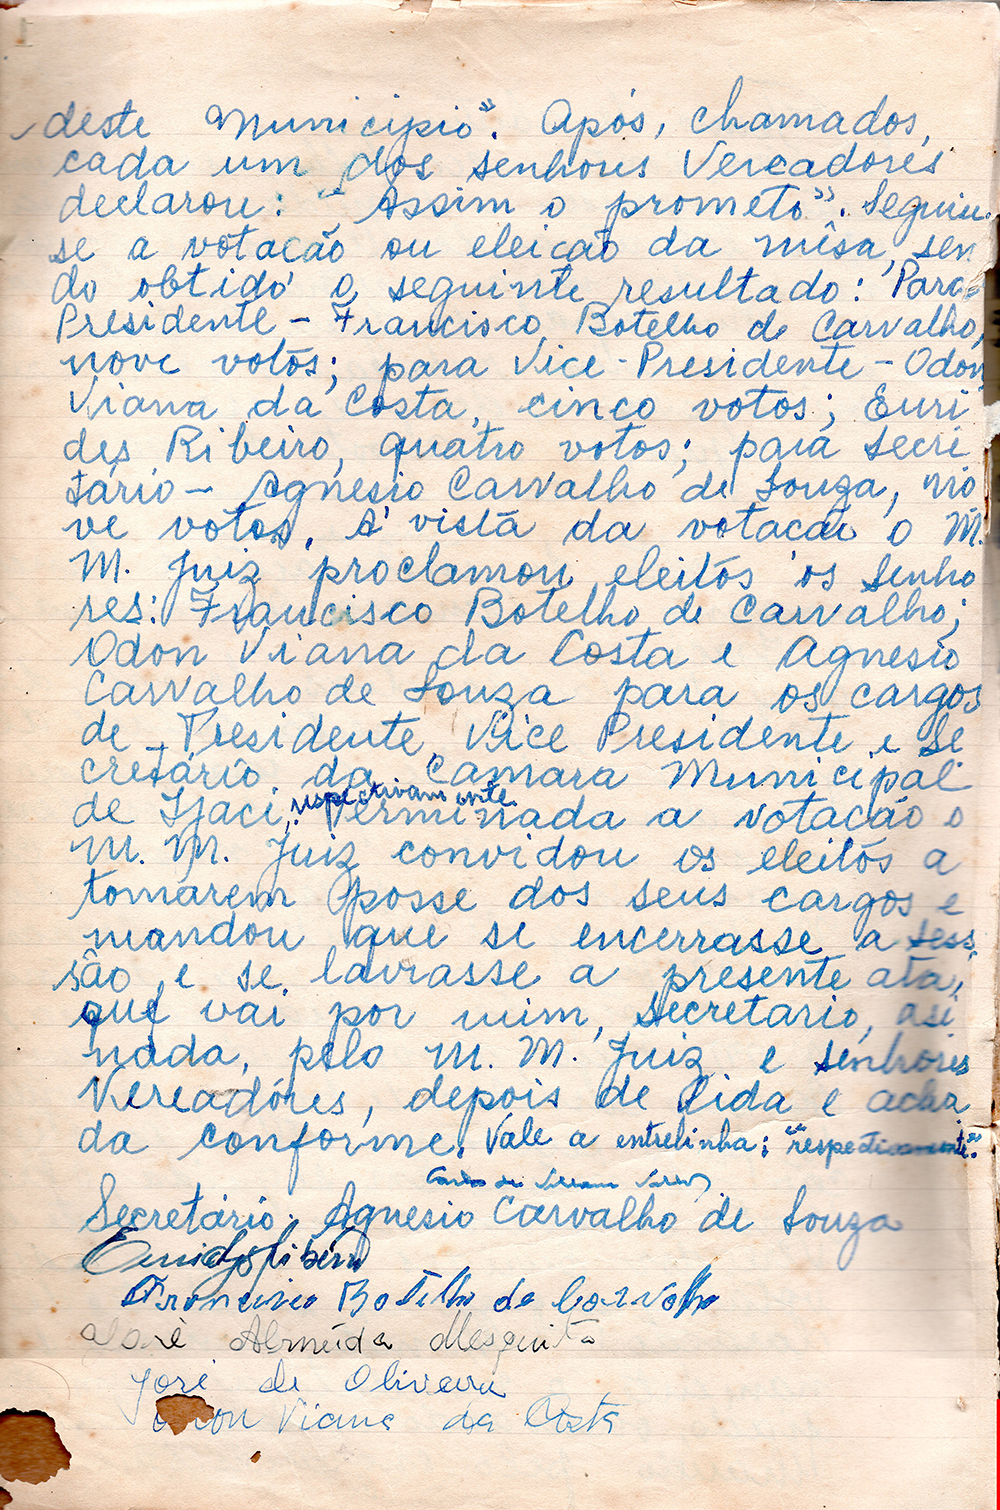 deste Municipio". Após, chamados,
cada um dos senhores Vereadores
declarou: "Assim o prometo". Seguiu-
se a votacão ou eleicão da mêsa, sen
do obtido o seguinte resultado: Para
Presidente - Francisco Botelho de Carvalho,
nove votos; para Vice-Presidente - Odon
Viana da Costa, cinco votos; Euri
des Ribeiro, quatro votos; para Secre
tário - Agnesio Carvalho de Souza, no
ve votos. A' vista da votacão o M.
M. Juiz proclamou eleitos os senho
res: Francisco Botelho de Carvalho;
Odon Viana da Costa e Agnesio
Carvalho de Souza para os cargos
de Presidente, Vice Presidente e Se
cretário da Camara Municipal
respectivamente
de Ijaci. Terminada a votacão o
M. M. Juiz convidou os eleitos a
tomarem posse dos seus cargos e
mandou que se encerrasse a ses
são e se lavrasse a presente ata,
que vai por mim, Secretario, asi
nada, pelo M. M. Juiz e senhores
Vereadóres, depois de lida e acha
da conforme. Vale a entrelinha: "respectivamente."
Secretário: Agnesio Carvalho de Souza
Francisco Botelho de Carvalho
José Almeida Mesquita
José de Oliveira
Odon Viana da Costa